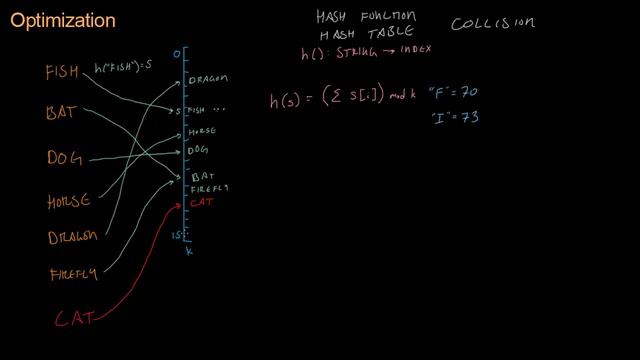 Optimization
HASH FUNCTION
HASH TABLE
COLLISION
h() : STRING → INDEX
h(s) = (Σ s[i]) mod k
"F" = 70
"I" = 73
FISH
h("FISH") = 5
BAT
DOG
HORSE
DRAGON
FIREFLY
CAT
0
DRAGON
5 FISH ...
HORSE
DOG
BAT
FIREFLY
CAT
15
k